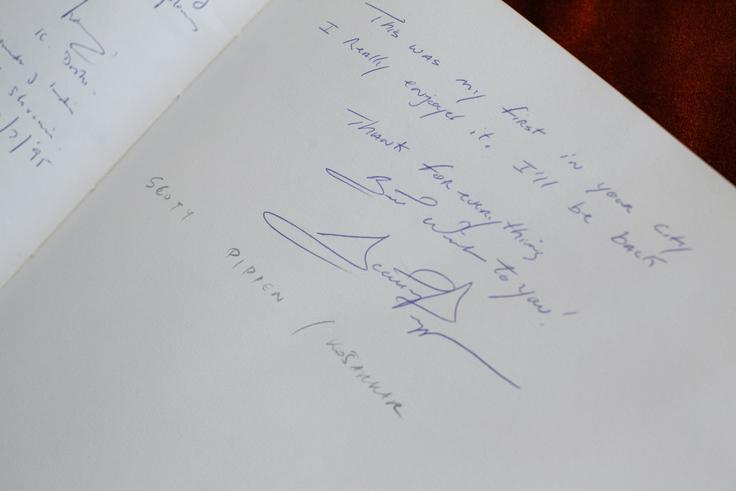 K. Doshi
of India
This was my first in your city
I Really enjoyed it. I'll be back
Thank for everything
Best Wish to you!
SCOTY
PIPPEN / KOŠARKAR